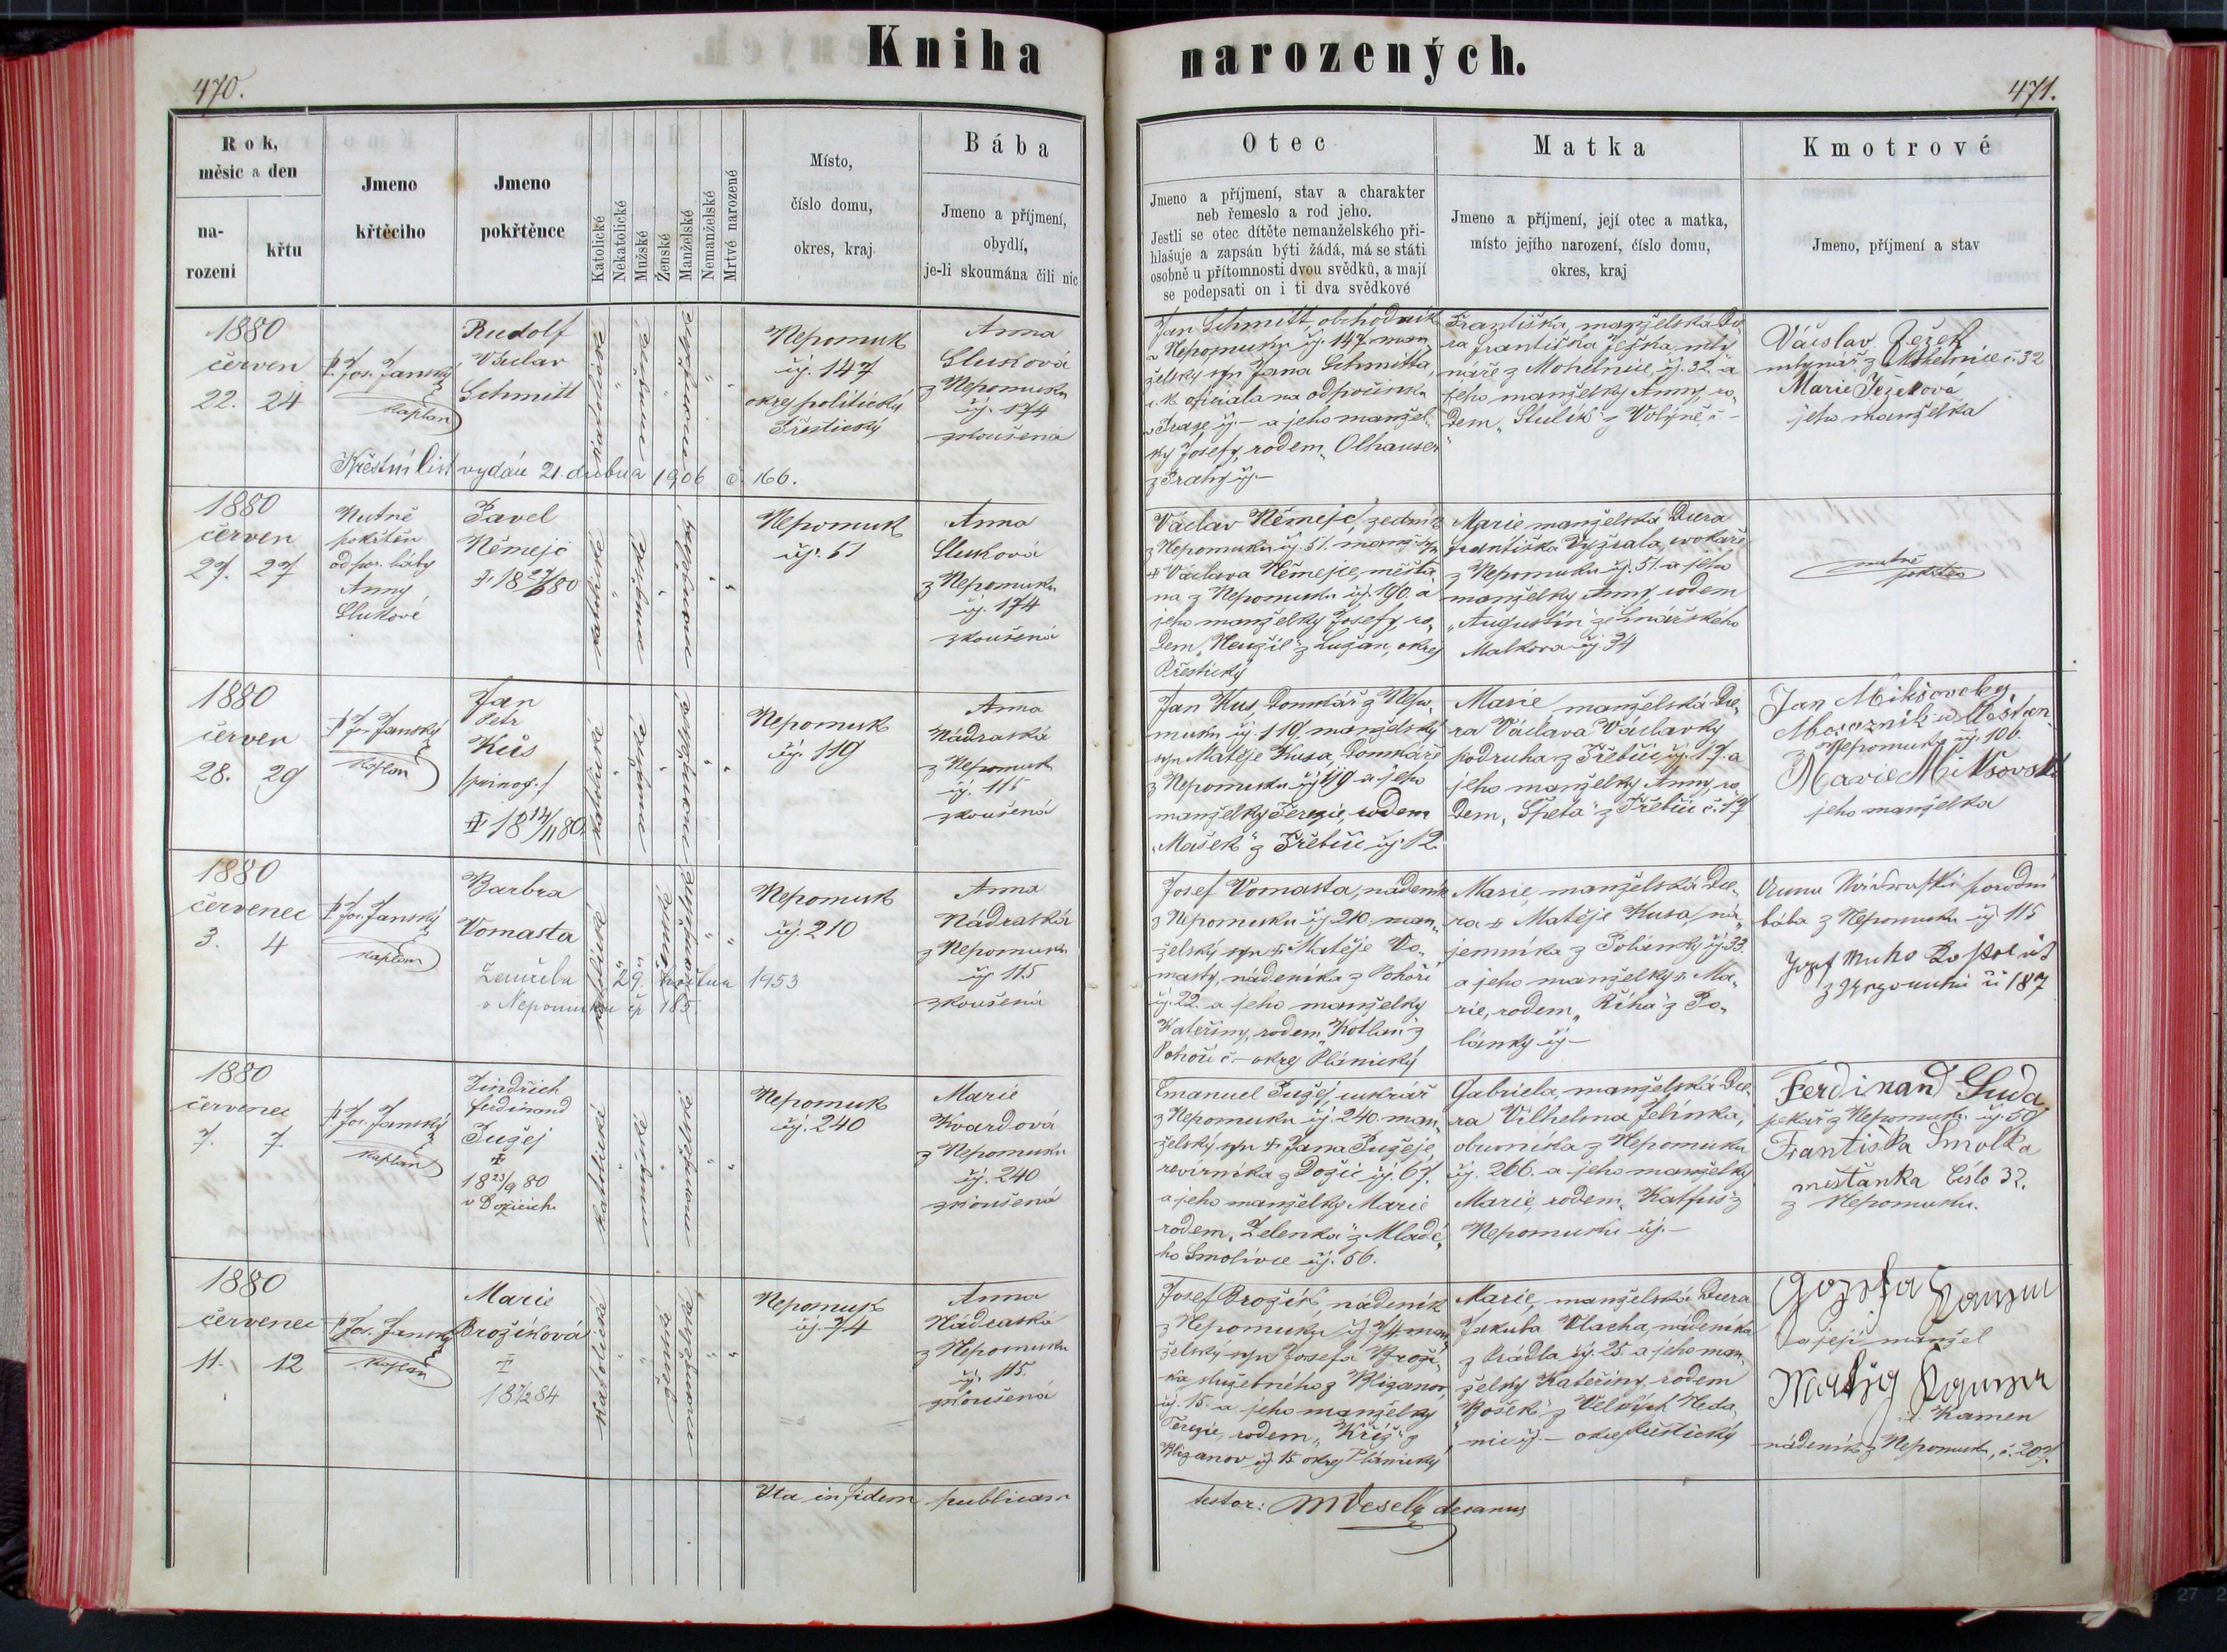 Kniha
narozených.
470.
471.
Rok,
měsíc a den
na-
rození
křtu
Jmeno
křtěcího
Jmeno
pokřtěnce
Katolické
Nekatolické
Mužské
Ženské
Manželské
Nemanželské
Mrtvé narozené
Místo,
číslo domu,
okres, kraj
Bába
Jmeno a příjmení,
obydlí,
je-li skoumána čili nic
Otec
Jmeno a příjmení, stav a charakter
neb řemeslo a rod jeho.
Jestli se otec dítěte nemanželského při-
hlašuje a zapsán býti žádá, má se státi
osobně u přítomnosti dvou svědků, a mají
se podepsati on i ti dva svědkové
Matka
Jmeno a příjmení, její otec a matka,
místo jejího narození, číslo domu,
okres, kraj
Kmotrové
Jmeno, příjmení a stav
1880
červen
22. 24
P. Jos. Janský
kaplan
Rudolf
Václav
Schmitt
katolické
mužské
manželské
Nepomuk
čj. 147
okres politický
Přestický
Anna
Slukova
z Nepomuku
čj. 174
zkoušená
Křestní list vydán 21. dubna 1906 č. 166.
Jan Schmitt, obchodník
v Nepomuku čj. 147 man-
želský syn Jana Schmitta,
c. k. oficiala na odpočinku
v Praze čj. – a jeho manžel-
ky Josefy, rodem „Olhauser"
z Prahy čj –
Františka, manželská dce-
ra Františka Ježka, mly-
náře z Mohelnice, čj. 32 a
jeho manželky Anny, ro-
dem „Stulík" z Volyně č –
Václav Ježek
mlynář z Mohelnice č. 32
Marie Ježková
jeho manželka
1880
červen
27. 27
Nutně
pokřtěn
od por. báby
Anny
Slukové
Pavel
Němejc
† 18 27/6 80
katolické
mužské
manželské
Nepomuk
čj. 51
Anna
Sluková
z Nepomuku
čj. 174
zkoušená
Václav Němejc, zedník
z Nepomuku čj. 51. manž. syn
† Václava Němejce, měšťa-
na z Nepomuku čj. 190. a
jeho manželky Josefy, ro-
dem „Neužil" z Lužan, okres
Přestický
Marie manželská dcera
Františka Vyžrala, cvokaře
z Nepomuku čj. 51. a jeho
manželky Anny, rodem
„Augustin" ze Lnářského
Malkova čj 34
nutně
pokřtěn
1880
červen
28. 29
P. Jos. Janský
kaplan
Jan
Petr
Kůs
/prvorof./
† 18 14/11 80.
katolické
mužské
manželské
Nepomuk
čj. 119
Anna
Nádraská
z Nepomuku
čj. 115
zkoušená
Jan Kus, domkář z Nepo-
muku čj. 119, manželský
syn Matěje Kusa, domkáře
z Nepomuku čj 119 a jeho
manželky Terezie, rodem
„Mašek" z Třebčic čj. 12.
Marie manželská dce-
ra Václava Václavky,
podruha z Třebčic čj. 17. a
jeho manželky Anny, ro-
dem „Špeta" z Třebčic č. 17
Jan Mikšovský,
z Nepomuku čj. 106.
Marie Mikšovská
jeho manželka
1880
červenec
3. 4
P. Jos. Janský
kaplan
Barbra
Vomasta
Zemřela 29. května 1953
v Nepomuku čp 185.
katolické
ženské
manželské
Nepomuk
čj. 210
Anna
Nádraská
z Nepomuku
čj. 115
zkoušená
Josef Vomasta, nádeník
z Nepomuku čj 210. man-
želský syn † Matěje Vo-
masty, nádeníka z Pohoří
čj. 22. a jeho manželky
Kateřiny, rodem „Kotlan" z
Pohoří č – okres Plánický
Marie, manželská dce-
ra † Matěje Kusa, ná-
jemníka z Polánky čj. 33.
a jeho manželky † Ma-
rie, rodem „Říha" z Po-
lánky čj –
Anna Nádraská porodní
bába z Nepomuku čj 115
z Nepomuku č 187
1880
červenec
7. 7
P. Jos. Janský
kaplan
Jindřich
Ferdinand
Pužej
†
18 23/9 80
v Dožicích
katolické
mužské
manželské
Nepomuk
čj. 240
Marie
Kvardová
z Nepomuku
čj. 240
zkoušená
Emanuel Pužej, cukrář
z Nepomuku čj 240. man-
želský syn † Jana Pužeje,
revírníka z Dožic čj. 67.
a jeho manželky Marie
rodem „Zelenka" z Mladé-
ho Smolivce čj. 56.
Gabriela, manželská dce-
ra Vilhelma Jelínka,
obuvníka z Nepomuku
čj. 266. a jeho manželky
Marie, rodem „Katfus" z
Nepomuku čj. –
Ferdinand Suda
pekař z Nepomuku čj. 59
Františka Smolka
mešťanka číslo 32.
z Nepomuku.
1880
červenec
11. 12
P. Jos. Janský
kaplan
Marie
Brožíková
†
18 7/2 84
katolické
ženské
manželské
Nepomuk
čj. 74
Anna
Nádraská
z Nepomuku
čj. 115.
zkoušená
Josef Brožík, nádeník
z Nepomuku čj. 74. man-
želský syn Josefa Broží-
ka služebného z Kližanov
čj. 15. a jeho manželky
Terezie, rodem „Kříž" z
Kližanov čj 15. okres Plánický
Marie, manželská dcera
Jakuba Vlacha, nádeníka
z Prádla čj. 25. a jeho man-
želky Kateřiny, rodem
„Bošek" z Velkých Neda-
nic čj. – okres Sušický
a její manžel
Kamen
nádeník z Nepomuku, č. 207.
Ita in fidem publicam
testor: M Veselý decanus